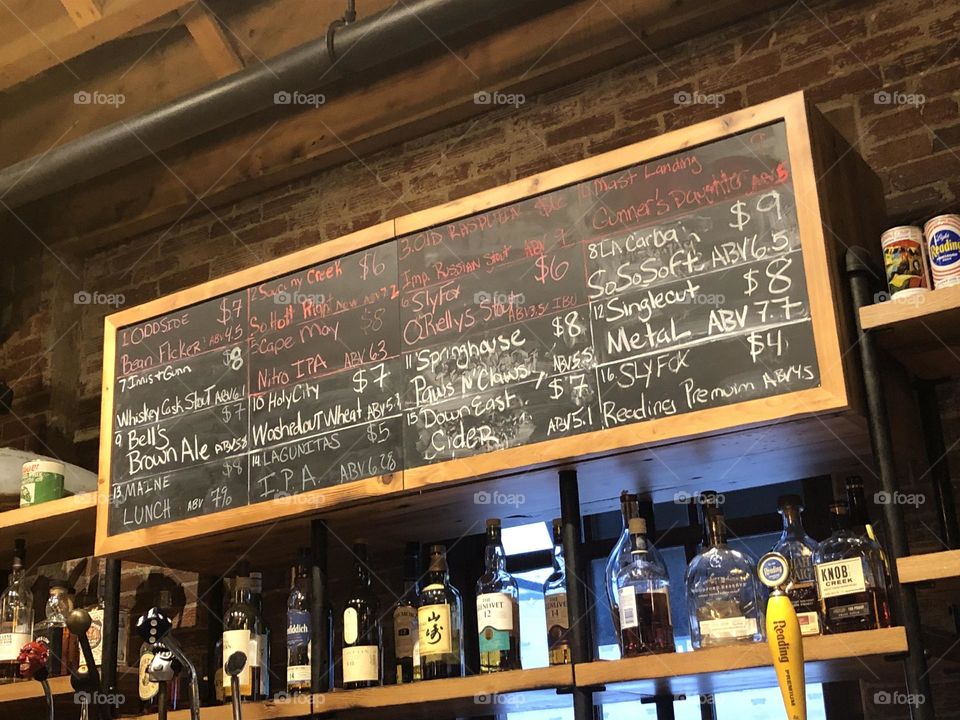 1 ODDSIDE $7
Bean Flicker ABV 4.5
7 Innis + Gunn $8
Whiskey Cask Stout ABV 6.1
9 Bell's $7
Brown Ale ABV 5.8
13 MAINE $8
LUNCH ABV 7%
2 Saucony Creek $6
So Hott Right Now ABV 7.2
Cape May $8
Nitro IPA ABV 6.3
10 Holy City $7
Washedout Wheat ABV 5.3
14 LAGUNITAS $5
I.P.A. ABV 6.28
3. Old RASPUTIN $6
Imp. Russian Stout ABV 9
6 Slyfox $6
O'Rellys Stout ABV 3.5 IBU
11 Springhouse $8
Paws N' Claws ABV 5.5
15 Down East $7
Cider ABV 5.1
Mast Landing
Gunner's Daughter ABV 5
8 LA Carbain $9
SoSoSoft ABV 6.5
12 Singlecut $8
Metal ABV 7.7
16 SLYFOX $4
Reading Premuim ABV 4.5
Light
Reading
THE
GLENLIVET
12
山崎
KNOB
CREEK
Reading
Reading
PREMIUM
foap